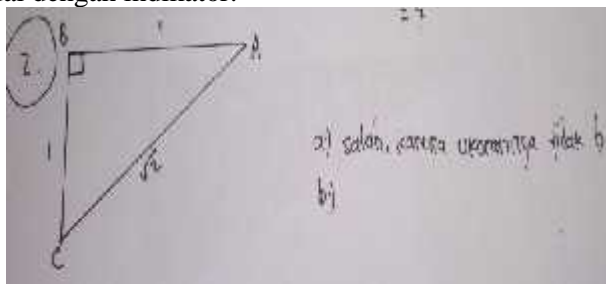 dengan indikator.
= 7
2.
B
1
A
1
√2
C
a) salah, karena ukurannya tidak b
b)